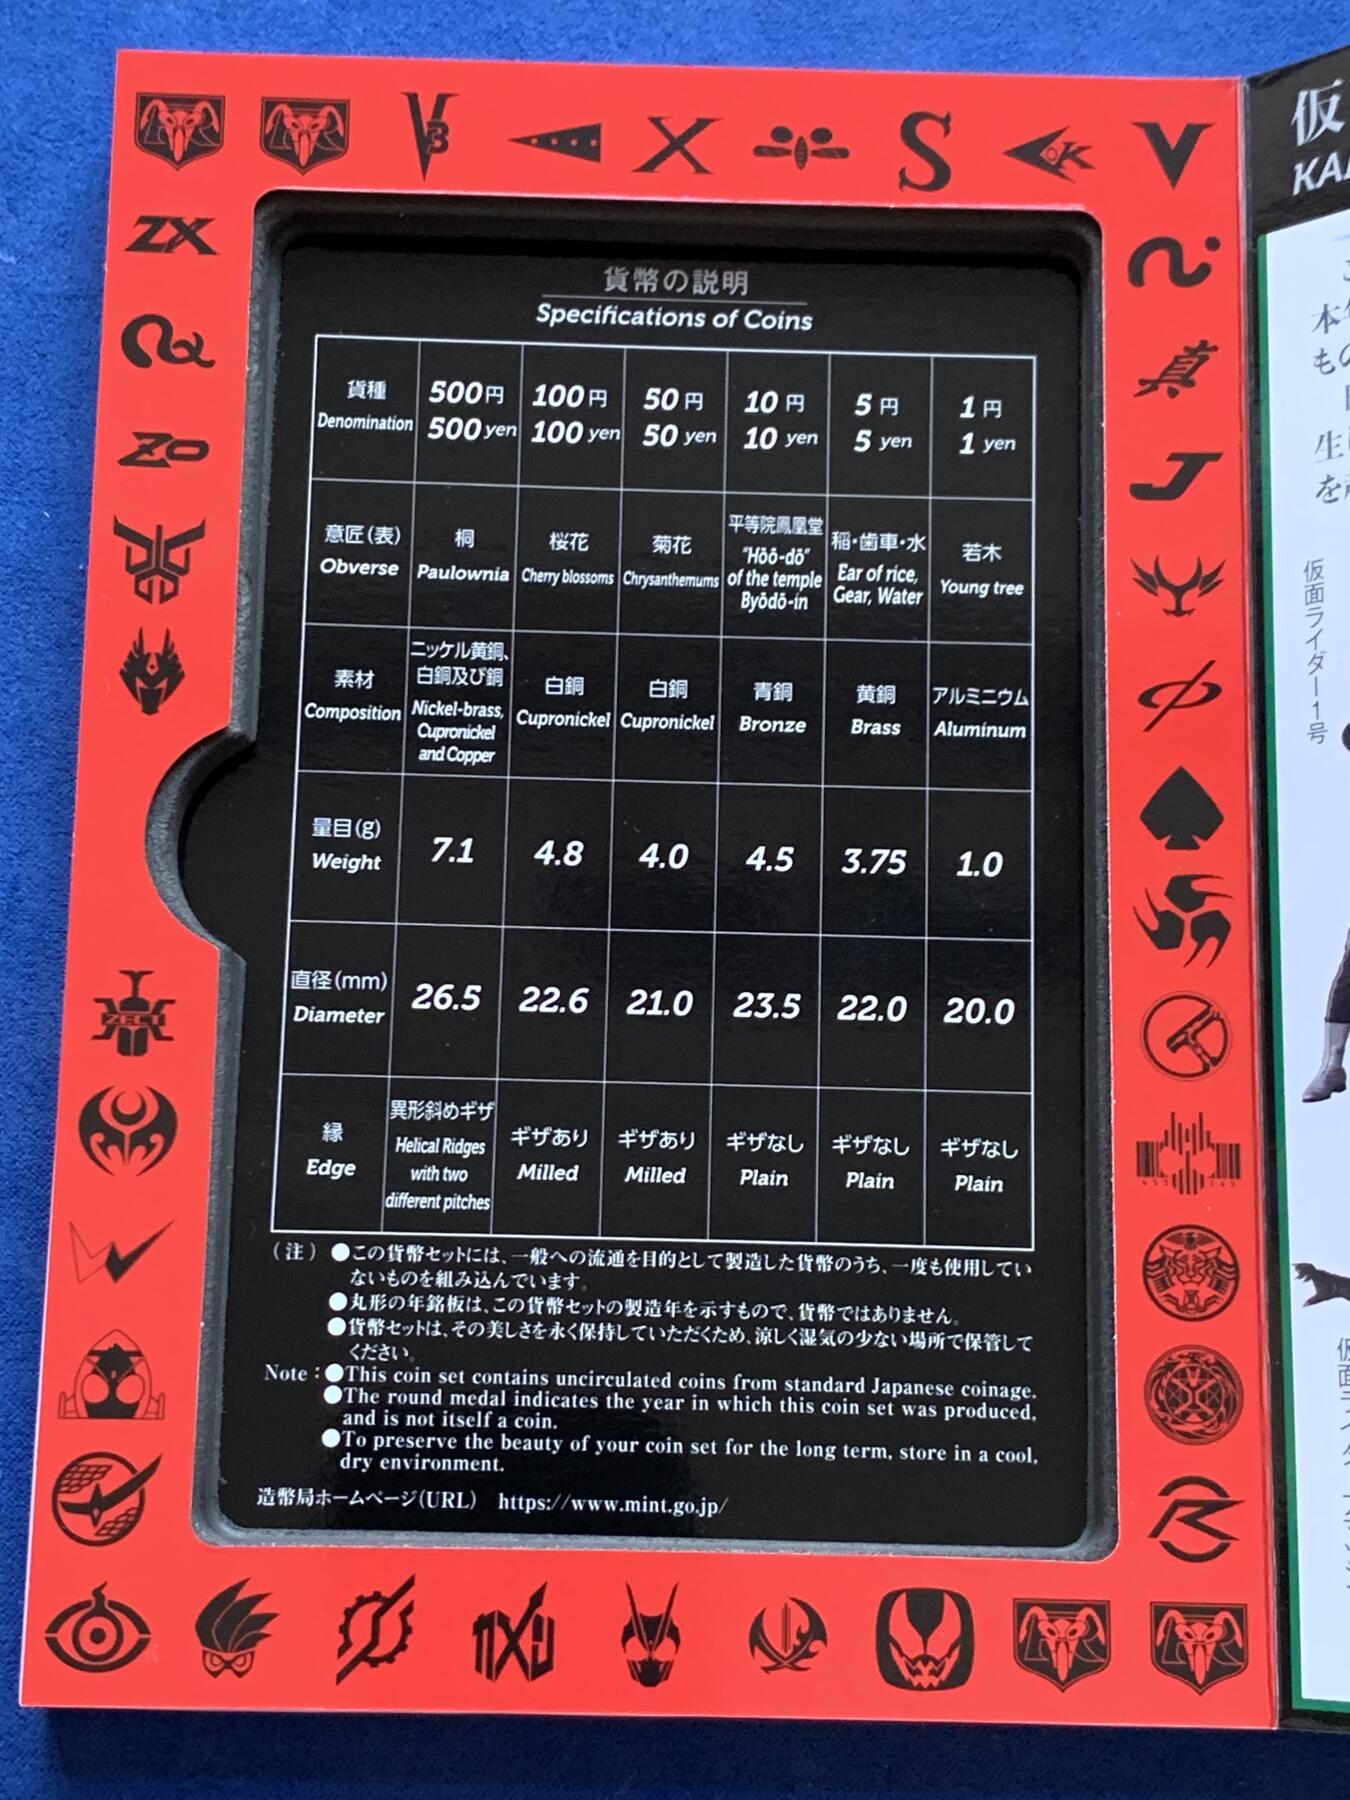 V3
X
S
V
ZX
ZO
真
J
ZECT
W
貨幣の説明
Specifications of Coins
貨種 500円 100円 50円 10円 5円 1円
Denomination 500 yen 100 yen 50 yen 10 yen 5 yen 1 yen
意匠(表) 桐 桜花 菊花 平等院鳳凰堂 稲・歯車・水 若木
Obverse Paulownia Cherry blossoms Chrysanthemums "Hōō-dō" of the temple Byōdō-in Ear of rice, Gear, Water Young tree
素材 ニッケル黄銅、白銅及び銅 白銅 白銅 青銅 黄銅 アルミニウム
Composition Nickel-brass, Cupronickel and Copper Cupronickel Cupronickel Bronze Brass Aluminum
量目(g)
Weight 7.1 4.8 4.0 4.5 3.75 1.0
直径(mm)
Diameter 26.5 22.6 21.0 23.5 22.0 20.0
縁 異形斜めギザ ギザあり ギザあり ギザなし ギザなし ギザなし
Edge Helical Ridges with two different pitches Milled Milled Plain Plain Plain
(注) ●この貨幣セットには、一般への流通を目的として製造した貨幣のうち、一度も使用してい
ないものを組み込んでいます。
●丸形の年銘板は、この貨幣セットの製造年を示すもので、貨幣ではありません。
●貨幣セットは、その美しさを永く保持していただくため、涼しく湿気の少ない場所で保管して
ください。
Note : ●This coin set contains uncirculated coins from standard Japanese coinage.
●The round medal indicates the year in which this coin set was produced,
and is not itself a coin.
●To preserve the beauty of your coin set for the long term, store in a cool,
dry environment.
造幣局ホームページ(URL) https://www.mint.go.jp/
仮
本
もの
生
を
仮面ライダー1号